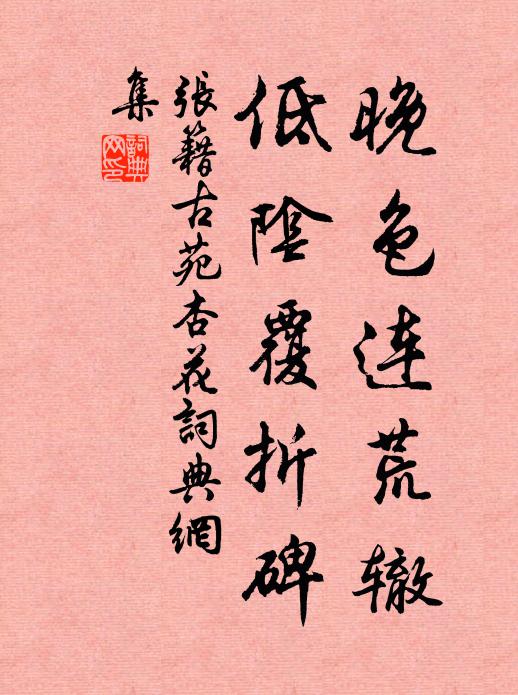 晚色连荒辙
低陰覆折碑
張籍古苑杏花詞典網
集
詞典網印